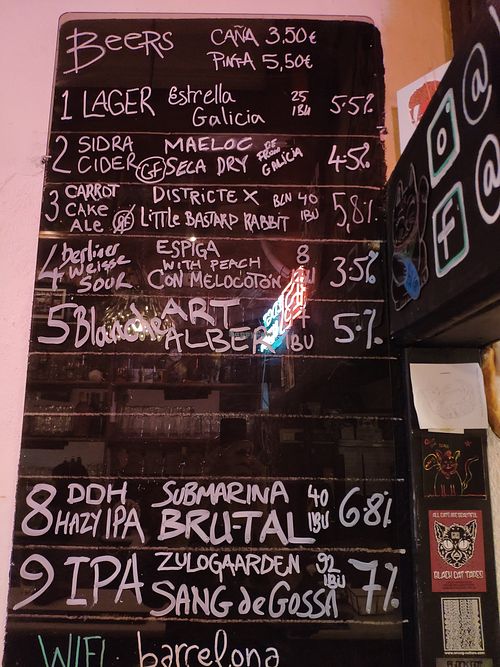 Beers CAÑA 3,50€
PINTA 5,50€
1 LAGER Estrella Galicia 25 IBU 5.5%
2 SIDRA CIDER GF MAELOC SECA DRY DE FROM GALICIA 4.5%
3 CARROT CAKE ALE DISTRICTE X BCN LITTLE BASTARD RABBIT 40 IBU 5,8%
4 Berliner Weisse SOUR ESPIGA WITH PEACH CON MELOCOTÓN 8 IBU 3.5%
5 Blanche ART ALBER IBU 5.%
8 DDH HAZY IPA SUBMARINA BRUTAL 40 IBU 6.8%
9 IPA ZULOGAARDEN SANG de GOSSA 92 IBU 7%
WIFI barcelona
@
@
f
ALL CATS ARE BEAUTIFUL
BLACK CAT TAPES